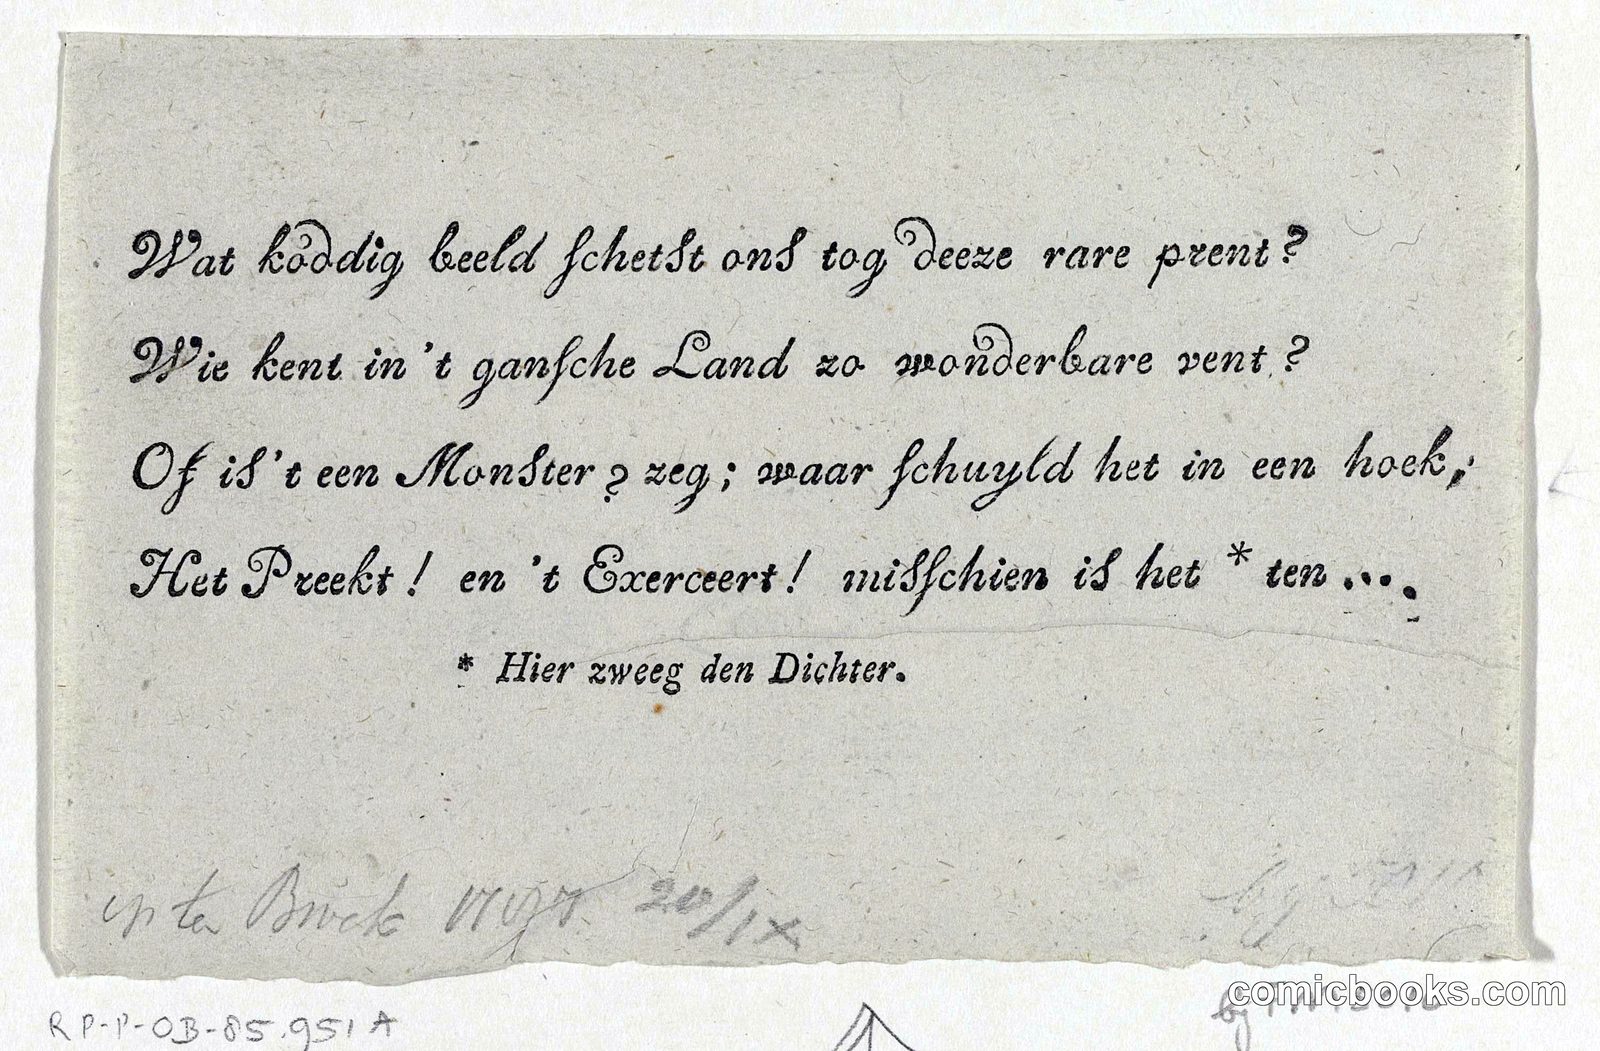 Wat koddig beeld schetst ons tog deeze rare prent?
Wie kent in 't gansche Land zo wonderbare vent?
Of is 't een Monster? zeg; waar schuyld het in een hoek;
Het Preekt! en 't Exerceert! misschien is het * ten ....
* Hier zweeg den Dichter.
op ten Broek 20/IX
by
RP-P-OB-85.951A
comicbooks.com
by